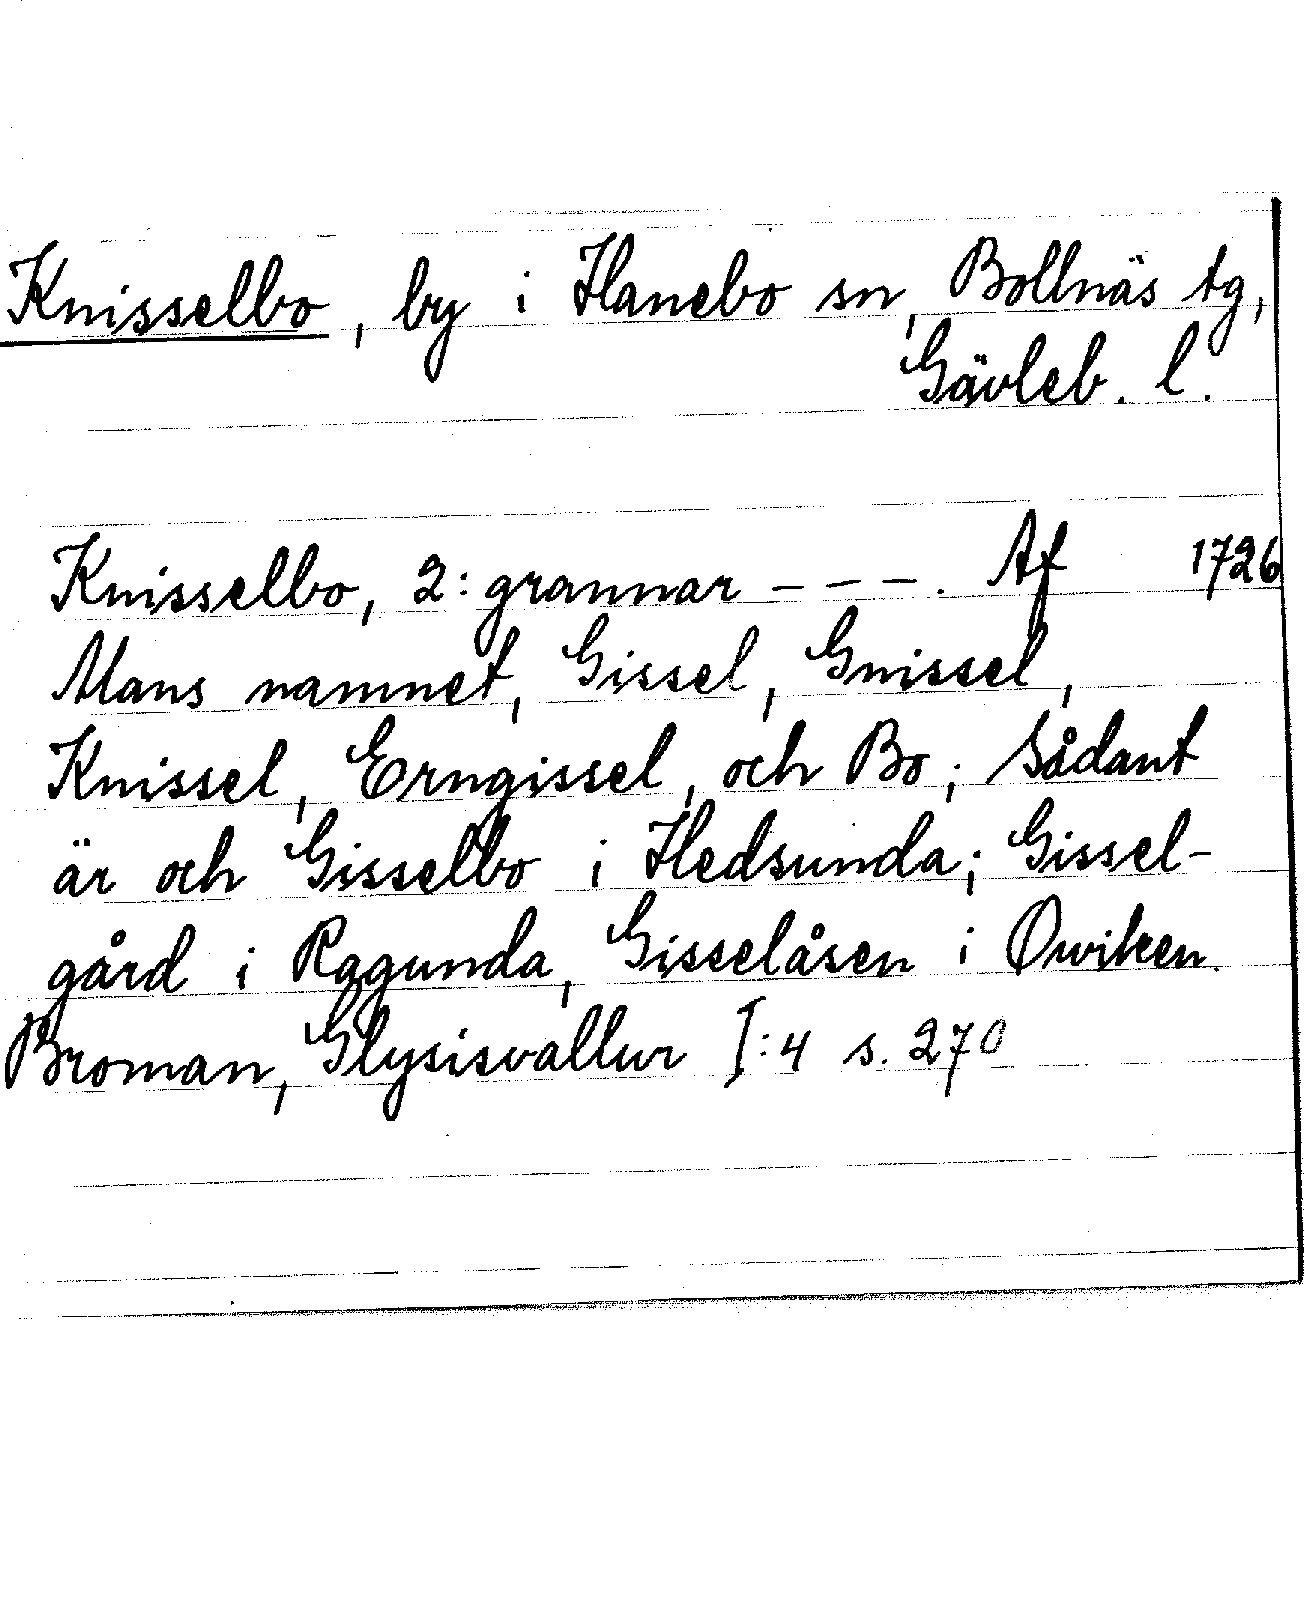 Knisselbo, by i Hanebo sn, Bollnäs tg,
Gävleb. l.
Knisselbo, 2: grannar - - -. Af 1726
Mans namnet, Gissel, Gnissel,
Knissel, Erngissel, och Bo; sådant
är och Gisselbo i Hedsunda; Gissel-
gård i Ragunda, Gisselåsen i Owiken.
Broman, Glysisvallur I:4 s. 270